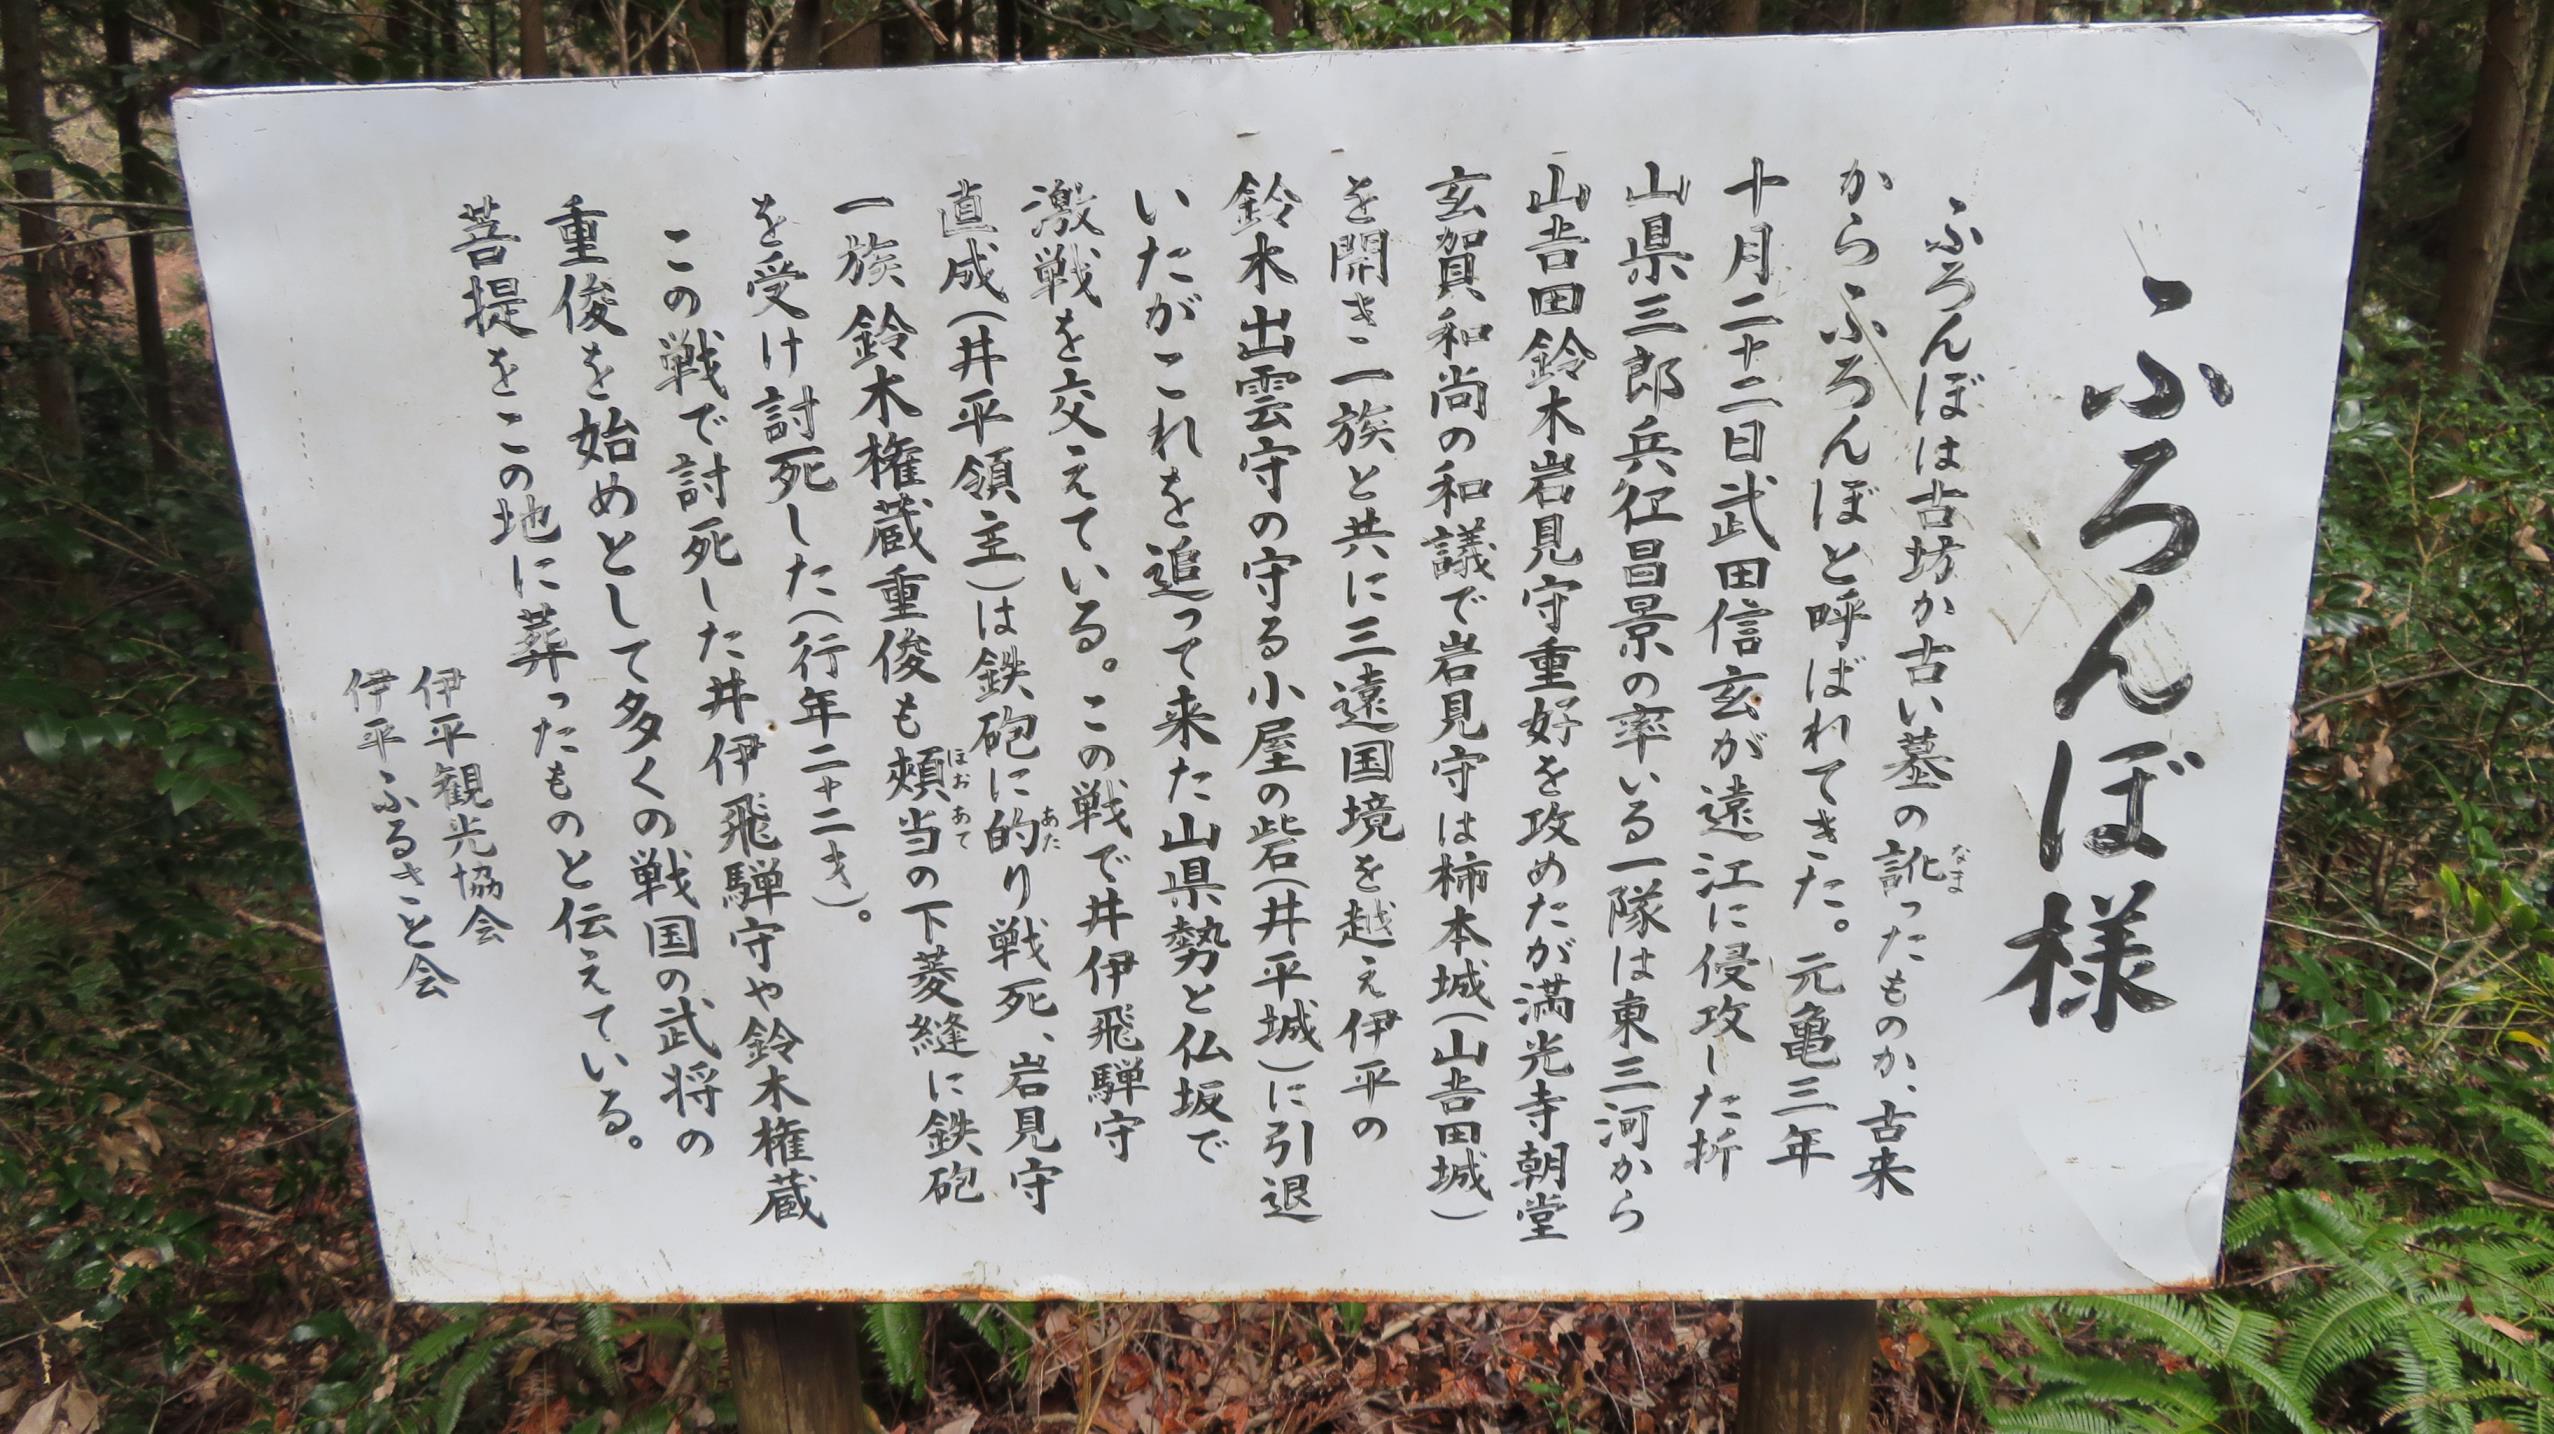 ふろんぼ様
ふろんぼは古坊か古い墓の訛ったものか、古来
なま
からふろんぼと呼ばれてきた。元亀三年
十月二十二日武田信玄が遠江に侵攻した折
山県三郎兵征昌景の率いる一隊は東三河から
山吉田鈴木岩見守重好を攻めたが満光寺朝堂
玄賀和尚の和議で岩見守は柿本城(山吉田城)
を開き一族と共に三遠国境を越え伊平の
鈴木出雲守の守る小屋の砦(井平城)に引退
いたがこれを追って来た山県勢と仏坂で
激戦を交えている。この戦で井伊飛騨守
直成(井平領主)は鉄砲に的り戦死、岩見守
あた
一族鈴木権蔵重俊も頬当の下菱縫に鉄砲
ほおあて
を受け討死した(行年二十二才)。
この戦で討死した井伊飛騨守や鈴木権蔵
重俊を始めとして多くの戦国の武将の
菩提をこの地に葬ったものと伝えている。
伊平観光協会
伊平ふるさと会